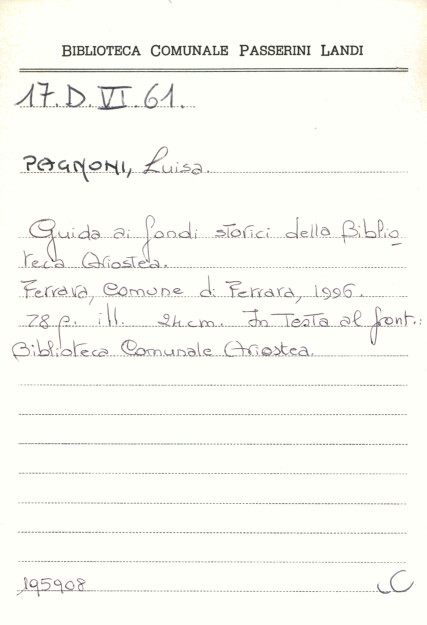 BIBLIOTECA COMUNALE PASSERINI LANDI
17.D.VI.61.
PAGNONI, Luisa.
Guida ai fondi storici della Biblio
teca Ariostea.
Ferrara, Comune di Ferrara, 1996.
78 p. ill. 24 cm. In testa al front.:
Biblioteca Comunale Ariostea.
195908